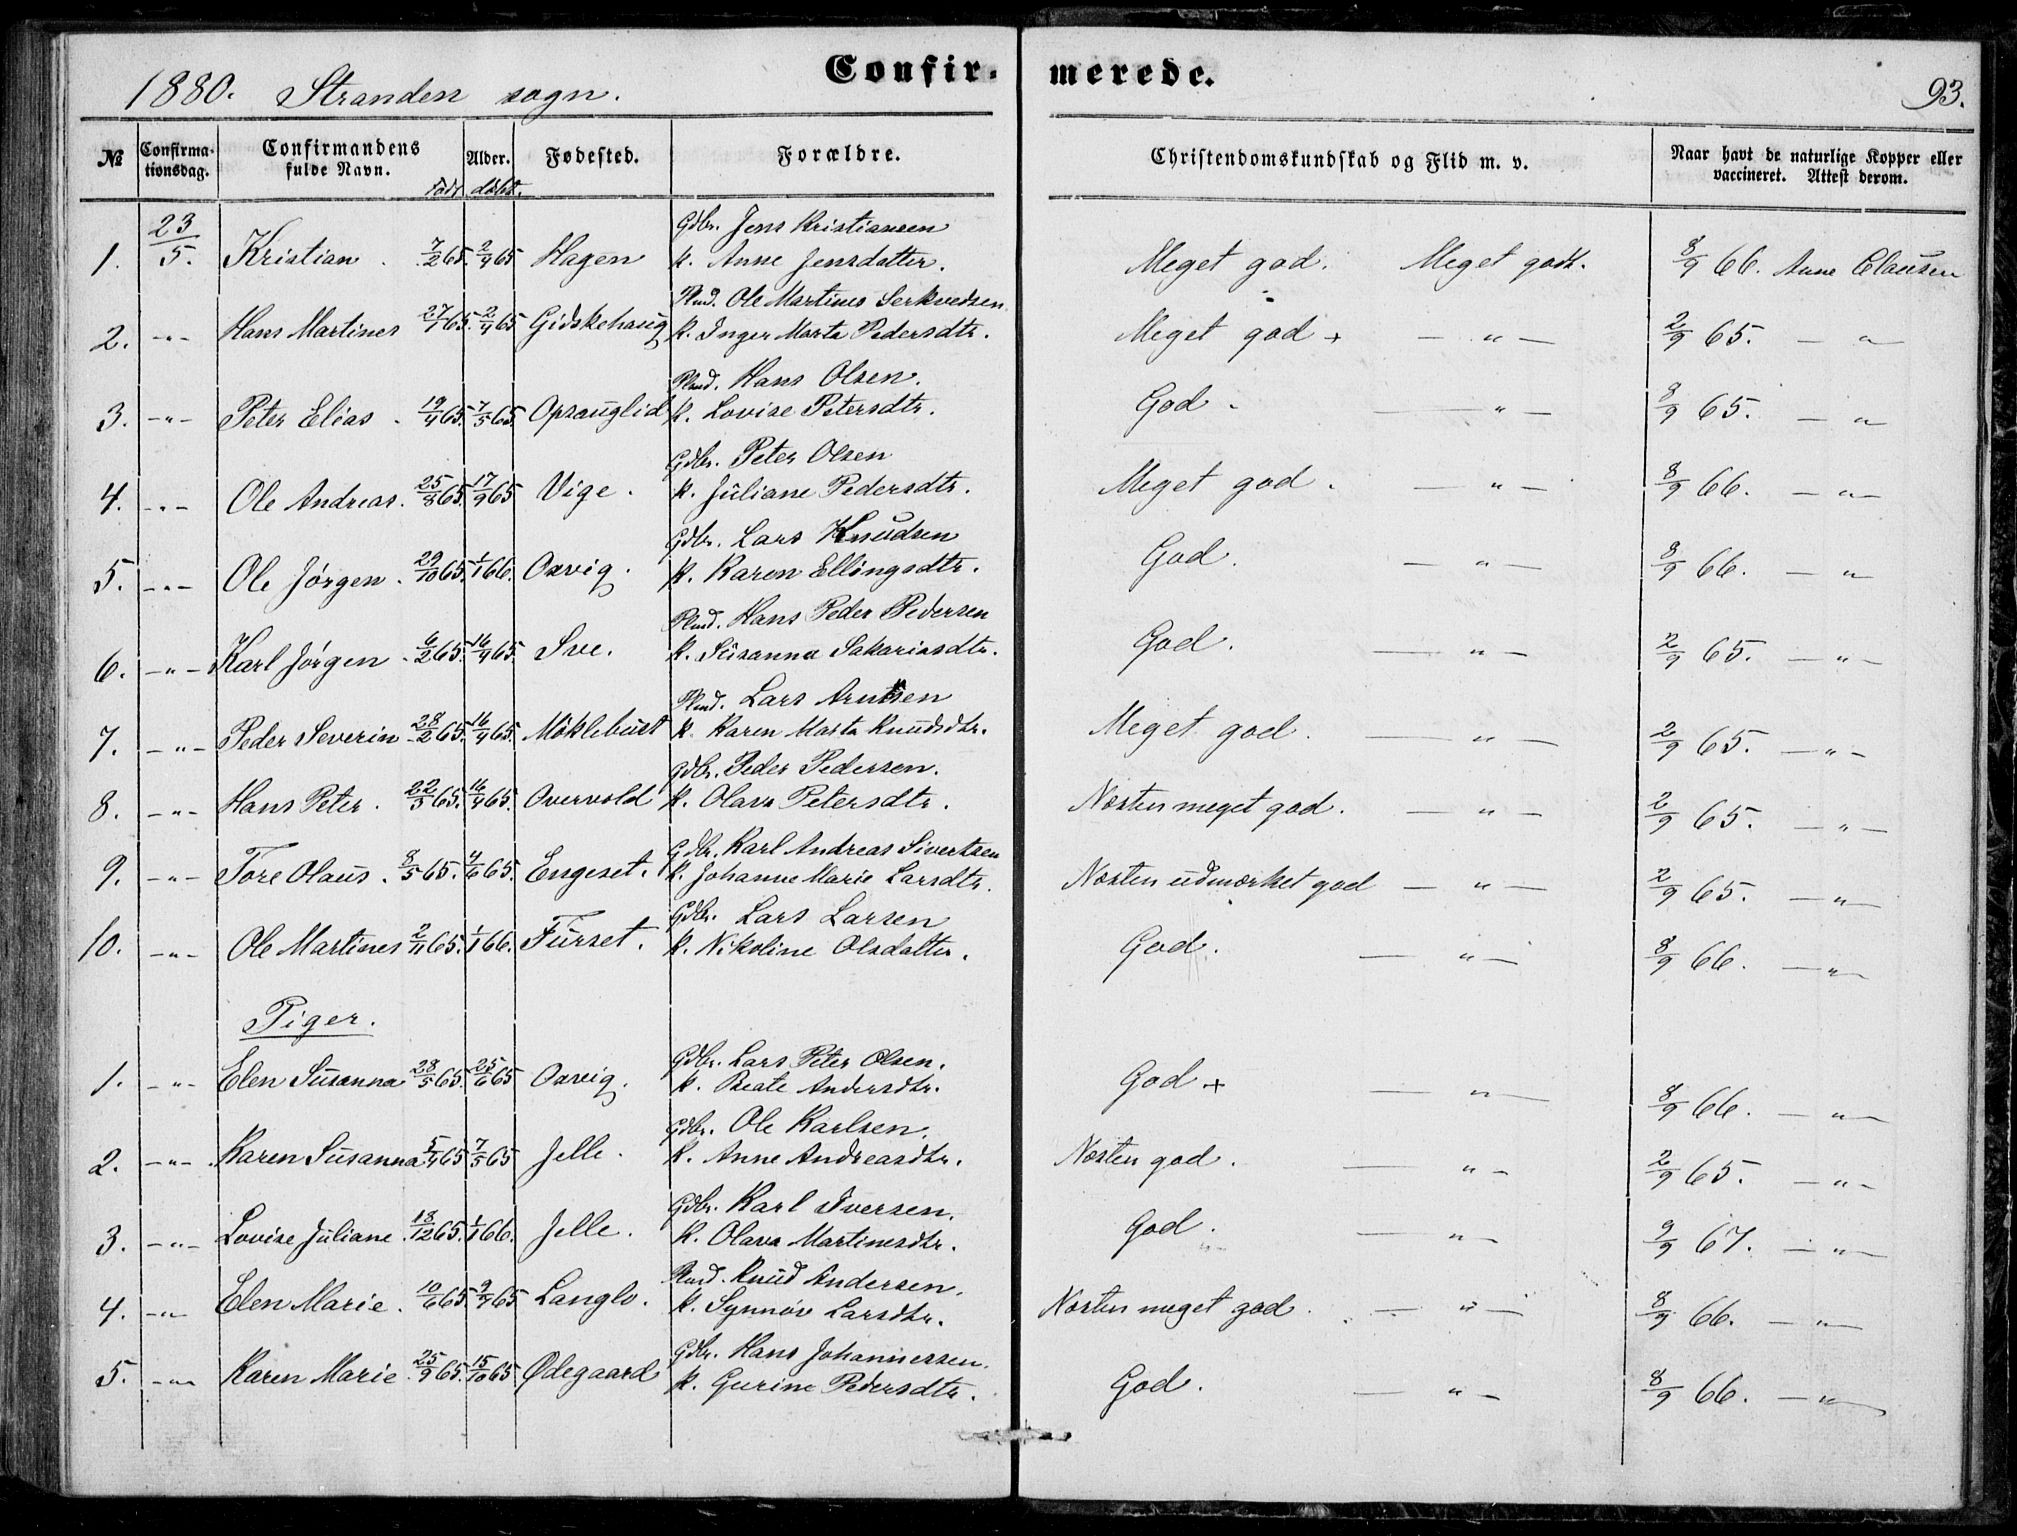 Confir- merede.
1880. Stranden sogn. 93.
№ Confirmationsdag. Confirmandens fulde Navn. født Alder. døbt. Fødested. Forældre. Christendomskundskab og Flid m. v. Naar havt de naturlige Kopper eller vaccineret. Attest derom.
Gdbr. Jens Kristiansen
1. 23/5. Kristian. 7/2 65. 2/4 65 Hagen k. Anne Jensdatter. Meget god. Meget godt. 8/9 66. Anne Clausen
Plmd. Ole Martinus Serkvedsen
2. -"- Hans Martines 27/1 65. 2/4 65 Gidskehaug k. Inger Marta Pedersdtr. Meget god + — " — 2/9 65. — "
Plmd. Hans Olsen.
3. -"- Peter Elias. 19/4 65. 7/5 65. Opsauglid k. Lovise Petersdtr. God. — " — 8/9 65. — "
Gdbr. Peter Olsen
4. -"- Ole Andreas. 25/8 65. 17/9 65 Vige. k. Juliane Pedersdtr. Meget god. — " — 8/9 66. — "
Gdbr. Lars Knudsen
5. -"- Ole Jørgen. 29/10 65. 1/1 66. Oxvig. k. Karen Ellingsdtr. God. — " — 8/9 66. — "
Plmd. Hans Peder Pedersen
6. -"- Karl Jørgen. 6/2 65. 16/4 65. Sve. k. Susanna Sakariasdtr. God. — " — 2/9 65. — " —
Plmd. Lars Arntsen
7. -"- Peder Severin 28/2 65. 16/4 65. Möklebust k. Karen Marta Knudsdtr. Meget god. — " — 2/9 65. — " —
Gdbr. Peder Pedersen.
8. -"- Hans Peter. 22/3 65. 16/4 65. Overvold k. Olava Petersdtr. Næsten meget god. — " — 2/9 65. — " —
Gdbr. Karl Andreas Sivertsen
9. -"- Tore Olaus. 8/5 65. 4/6 65. Engeset. k. Johanne Marie Larsdtr. Næsten udmærket god — " — 2/9 65. — " —
Gdbr. Lars Larsen
10. -"- Ole Martines 2/11 65. 1/1 66. Furset. k. Nikoline Olsdatter. God. — " — 8/9 66. — " —
Piger.
Gdbr. Lars Peter Olsen.
1. -"- Elen Susanna 28/5 65. 25/6 65 Oxvig. k. Beate Andersdtr. God + — " — 8/9 66. — " —
Gdbr. Ole Karlsen.
2. -"- Karen Susanna 5/4 65 7/5 65 Jelle. k. Anne Andreasdtr. Næsten god. — " — 2/9 65. — " —
Gdbr. Karl Iversen.
3. -"- Lovise Juliane. 18/12 65. 1/1 66. Jelle. k. Olava Martinesdtr. God. — " — 9/9 67. — " —
Plmd. Knud Andersen.
4. -"- Elen Marie. 10/6 65. 9/7 65 Langlo. k. Synnöv Larsdtr. Næsten meget god. — " — 8/9 66. — " —
Gdbr. Hans Johannessen.
5. -"- Karen Marie. 25/9 65. 15/10 65 Ødegaard k. Gurine Pedersdtr. God. — " — 8/9 66. — " —